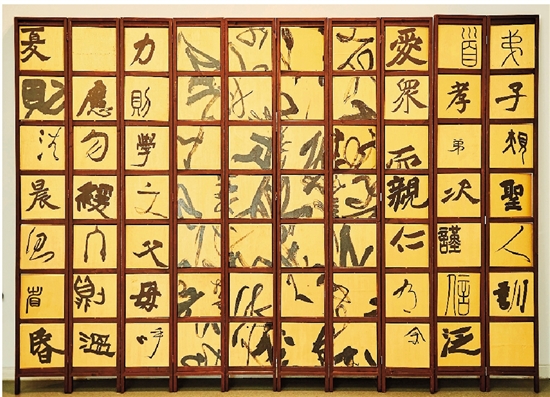 弟子規聖人訓
首孝弟次謹信泛
愛眾而親仁有余
力則學文父母呼
應勿緩冬則溫
夏則凊晨則省昏